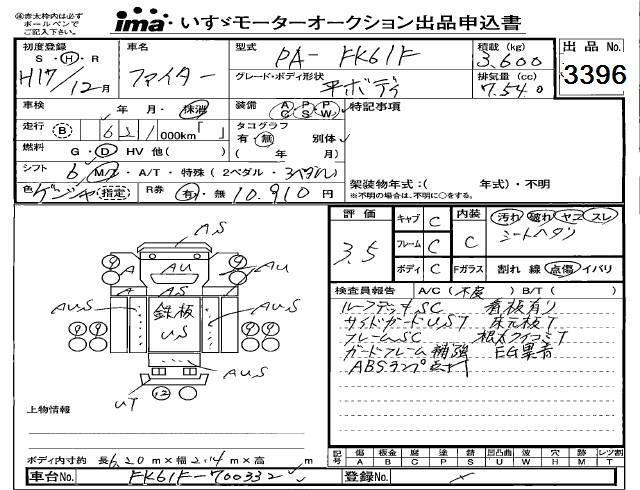 ※赤太枠内は必ず
ボールペンで
ご記入下さい。
ima いすゞモーターオークション出品申込書
初度登録 車名 型式 積載 (kg) 出品 No.
S・H・R H17/12月 ファイター PA-FK61F 3.600 3396
グレード・ボディ形状 平ボディ 排気量 (cc) 7.540
車検 年 月・抹消 装備 A/C P/S P/W 特記事項
走行 B 621 000km「 」 タコグラフ 有・無 別体
燃料 G・D HV 他( ) ( 年 月)
シフト 6 M/T・A/T・特殊 (2ペダル・3ペダル) 架装物年式:( 年式)・不明
※不明の場合は、不明に○をする。
色 (指定) R券 有・無 10.910円
評価 3.5 キャブ C 内装 C 汚れ 破れ ヤニ スレ
シートヘタリ
フレーム C
ボディ C Fガラス 割れ 線 点傷 イバリ
検査員報告 A/C (不良) B/T ( )
ルーフデッキSC 看板有り
サイドガードUST 床元板T
フレームSC 根太クイコミT
ガードフレーム補強 EG異音
ABSランプ点灯
AS
AU AU
A AS
AUS 鉄板 US AUS
AUS
UT 12
上物情報
ボディ内寸約 長6.20m×幅2.14m×高 m
記号 傷A 板金B 腐C 塗P 錆S 凹凸曲U 波W 穴H 跡M レツ割T
車台No. FK61F-700332 登録No.